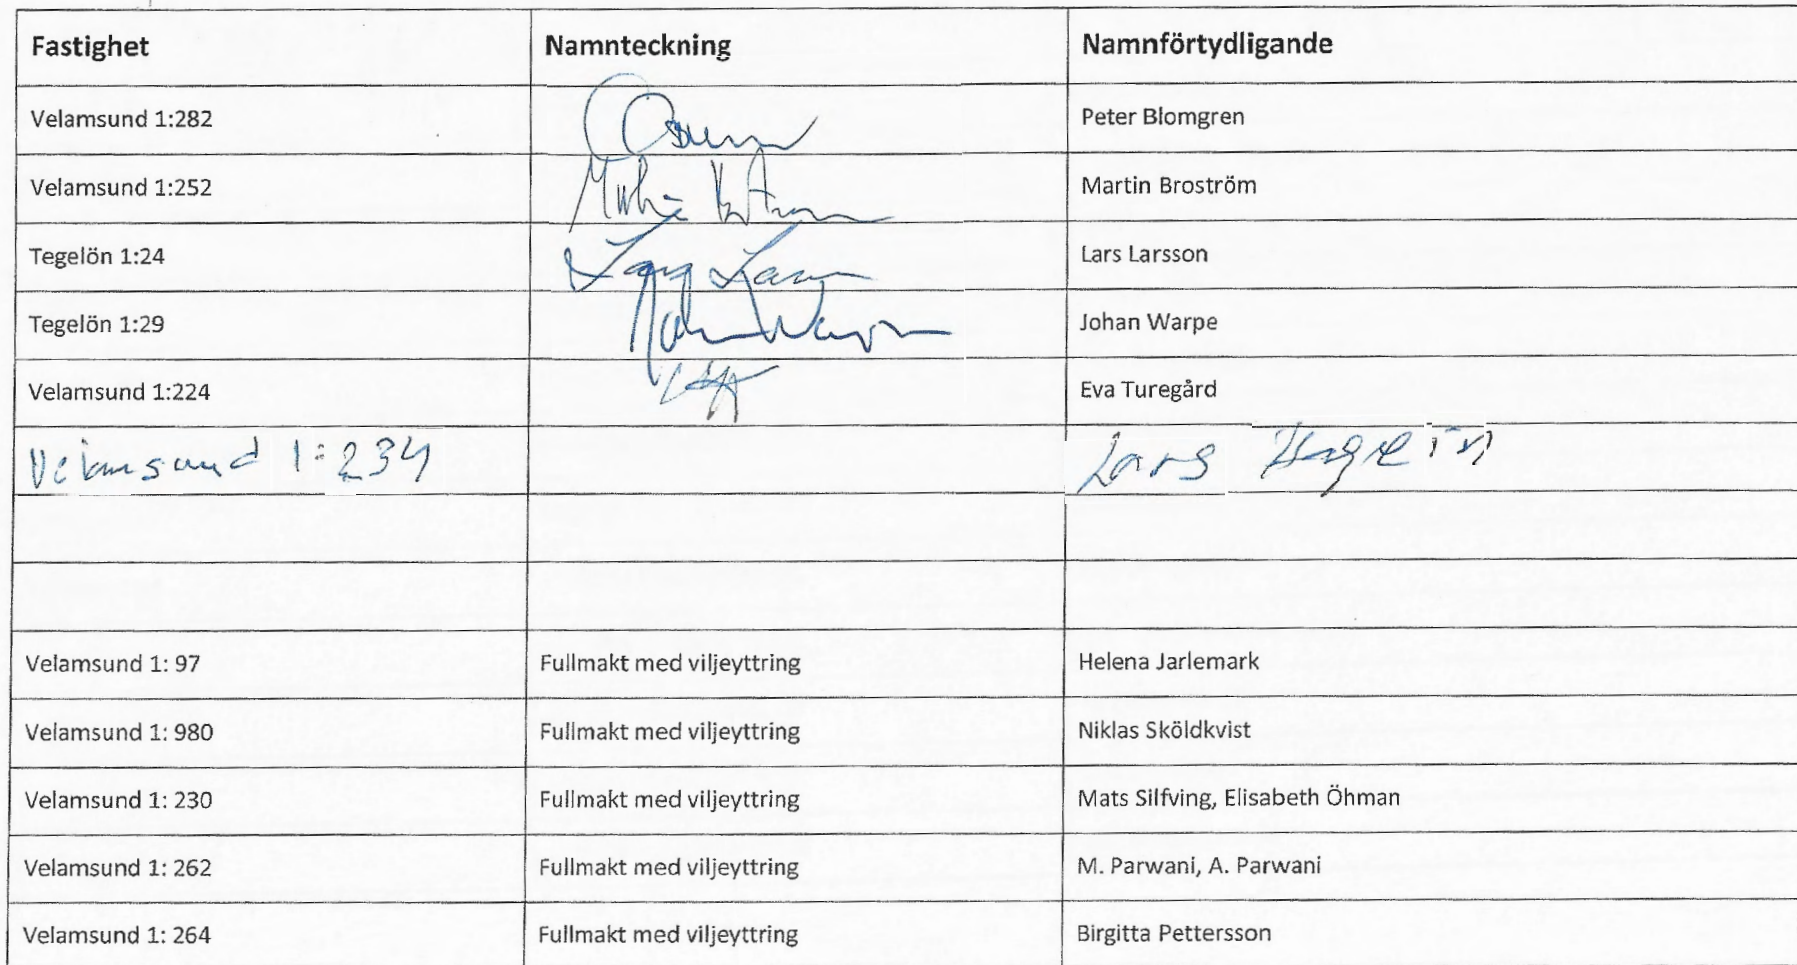 Fastighet Namnteckning Namnförtydligande
Velamsund 1:282 Peter Blomgren
Velamsund 1:252 Martin Broström
Tegelön 1:24 Lars Larsson Lars Larsson
Tegelön 1:29 Johan Warpe Johan Warpe
Velamsund 1:224 Eva Turegård
Velamsund 1:234 Lars
Velamsund 1: 97 Fullmakt med viljeyttring Helena Jarlemark
Velamsund 1: 980 Fullmakt med viljeyttring Niklas Sköldkvist
Velamsund 1: 230 Fullmakt med viljeyttring Mats Silfving, Elisabeth Öhman
Velamsund 1: 262 Fullmakt med viljeyttring M. Parwani, A. Parwani
Velamsund 1: 264 Fullmakt med viljeyttring Birgitta Pettersson